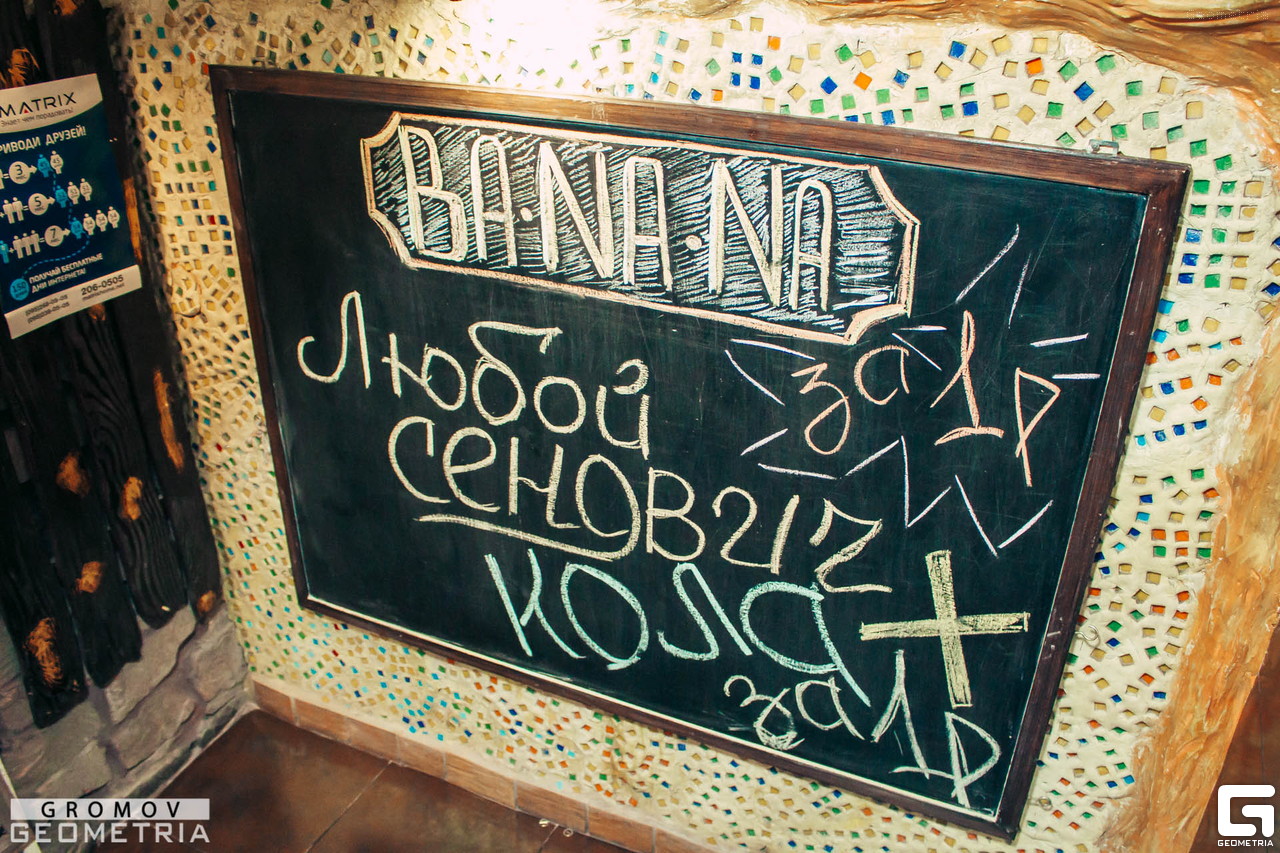 MATRIX
Знает, чем порадовать!
РИВОДИ ДРУЗЕЙ!
3
5
7
ПОЛУЧАЙ БЕСПЛАТНЫЕ
ДНИ ИНТЕРНЕТА!
206-0505
BA·NA·NA
Любой
за 1р
сенович
+
кола
за 1р
GROMOV
GEOMETRIA
G
GEOMETRIA